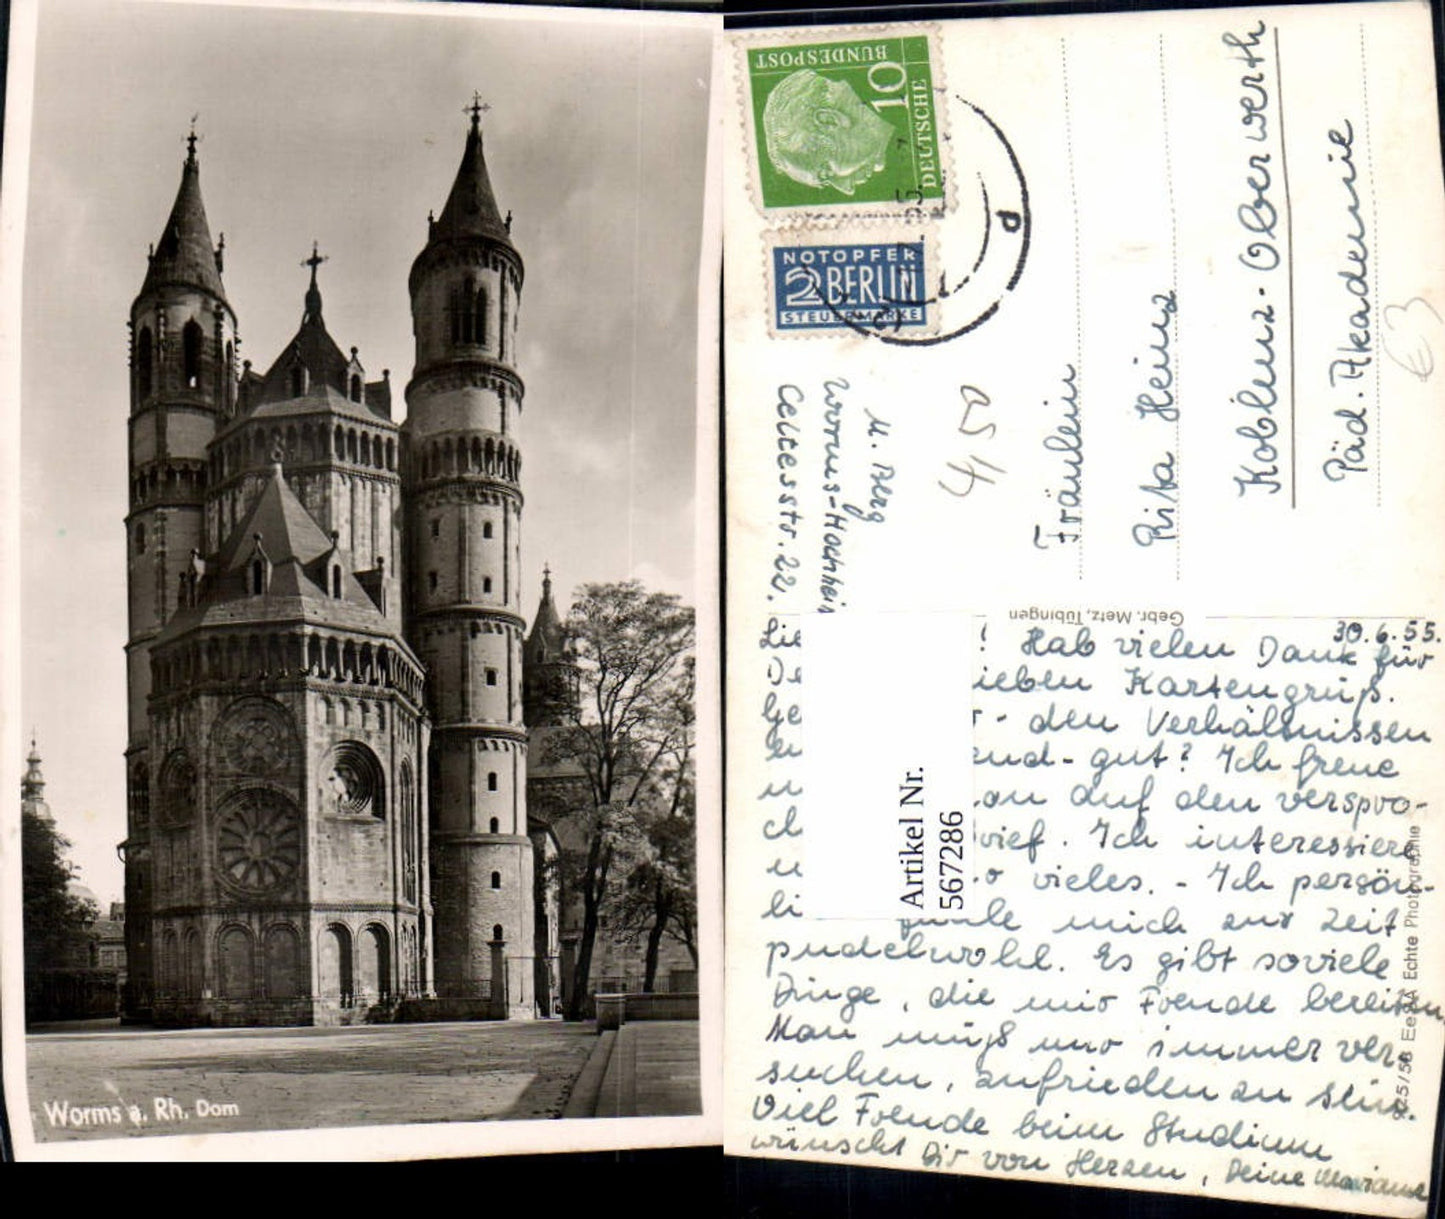 Worms a. Rh. Dom
DEUTSCHE
BUNDESPOST
10
NOTOPFER
2 BERLIN
STEUERMARKE
55
d
M. Berg
Worms-Hochheim
Celtesstr. 22.
Fräulein
Rita Heinz
Koblenz-Oberwerth
Päd. Akademie
€3
Gebr. Metz, Tübingen
Artikel Nr.
567286
30.6.55.
Hab vielen Dank für
ieben Kartengruß.
den Verhältnissen
end-gut? Ich freue
auf den verspro-
rief. Ich interessiere
vieles. - Ich persön-
li mich zur Zeit
pudelwohl. Es gibt soviele
Dinge, die uns Freude bereiten.
Man muß nur immer ver-
suchen, zufrieden zu sein.
Viel Freude beim Studium
wünscht Dir von Herzen, Deine Marianne
Echte Photographie